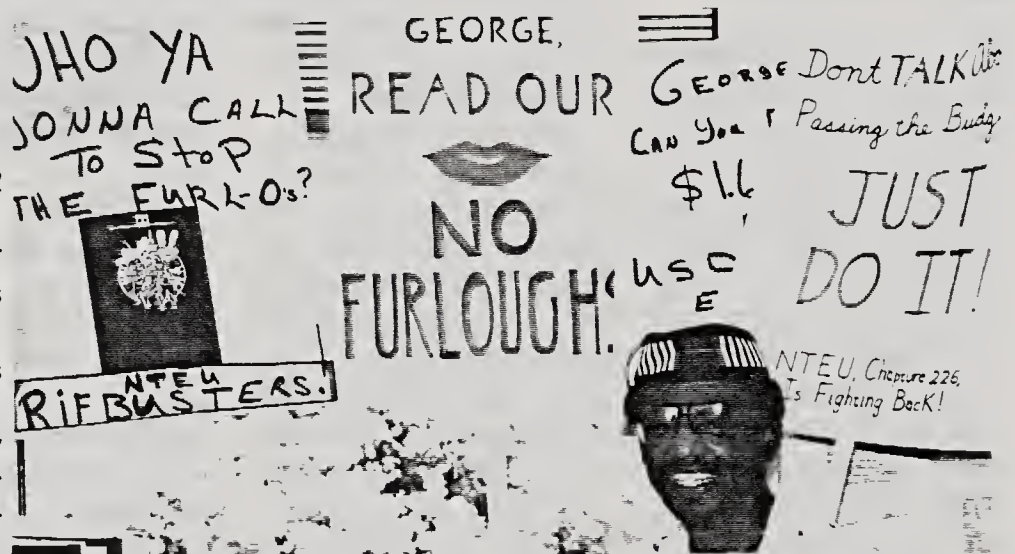 JHO YA
JONNA CALL
To StoP
THE FURL-O's?
NTEU
RiFBUSTERS.
GEORGE,
READ OUR
NO
FURLOUGH
GEORGE
CAN You
$1.6
USE
Dont TALK Abo
Passing the Budg
JUST
DO IT!
NTEU, Chapture 226,
Is Fighting BacK!